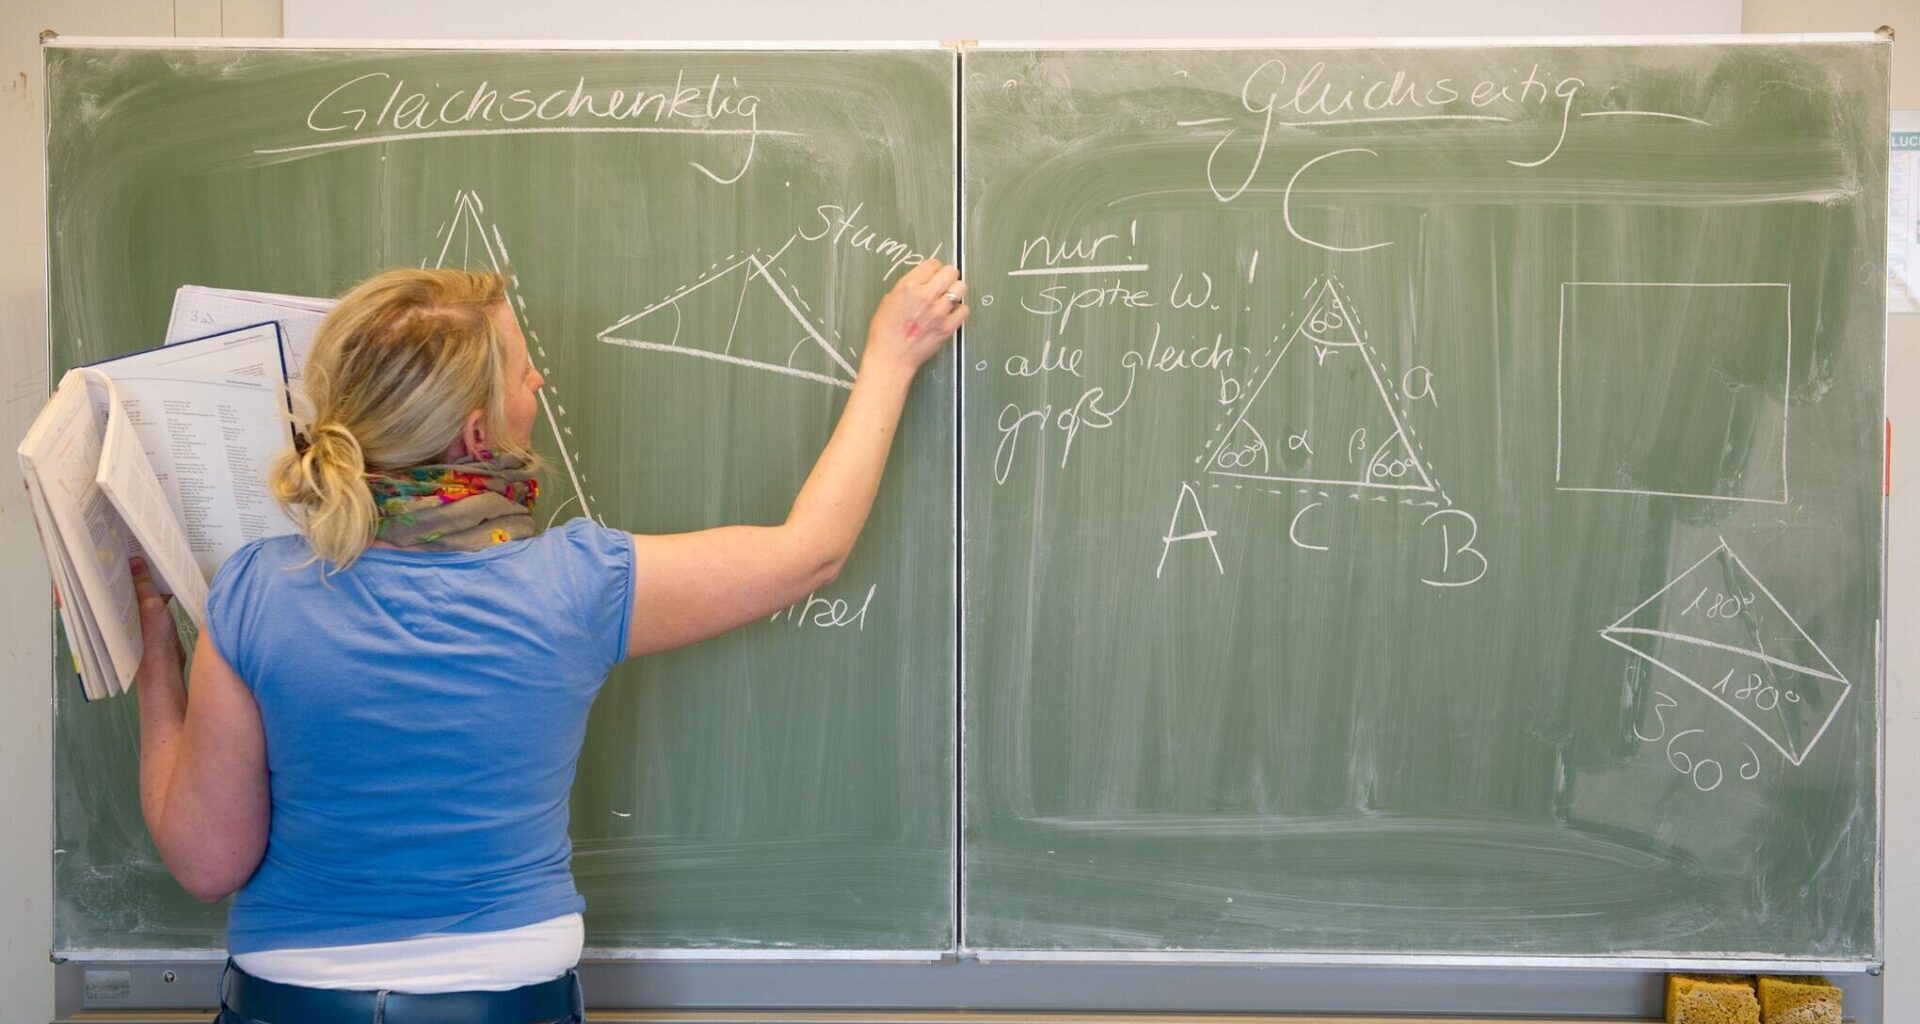 Gleichschenklig
Stumpf
Gleichseitig
C
nur!
• spitze W. !
• alle gleich
groß
60°
γ
b
a
60°
α
β
60°
A
C
B
180°
180°
360°
LUC